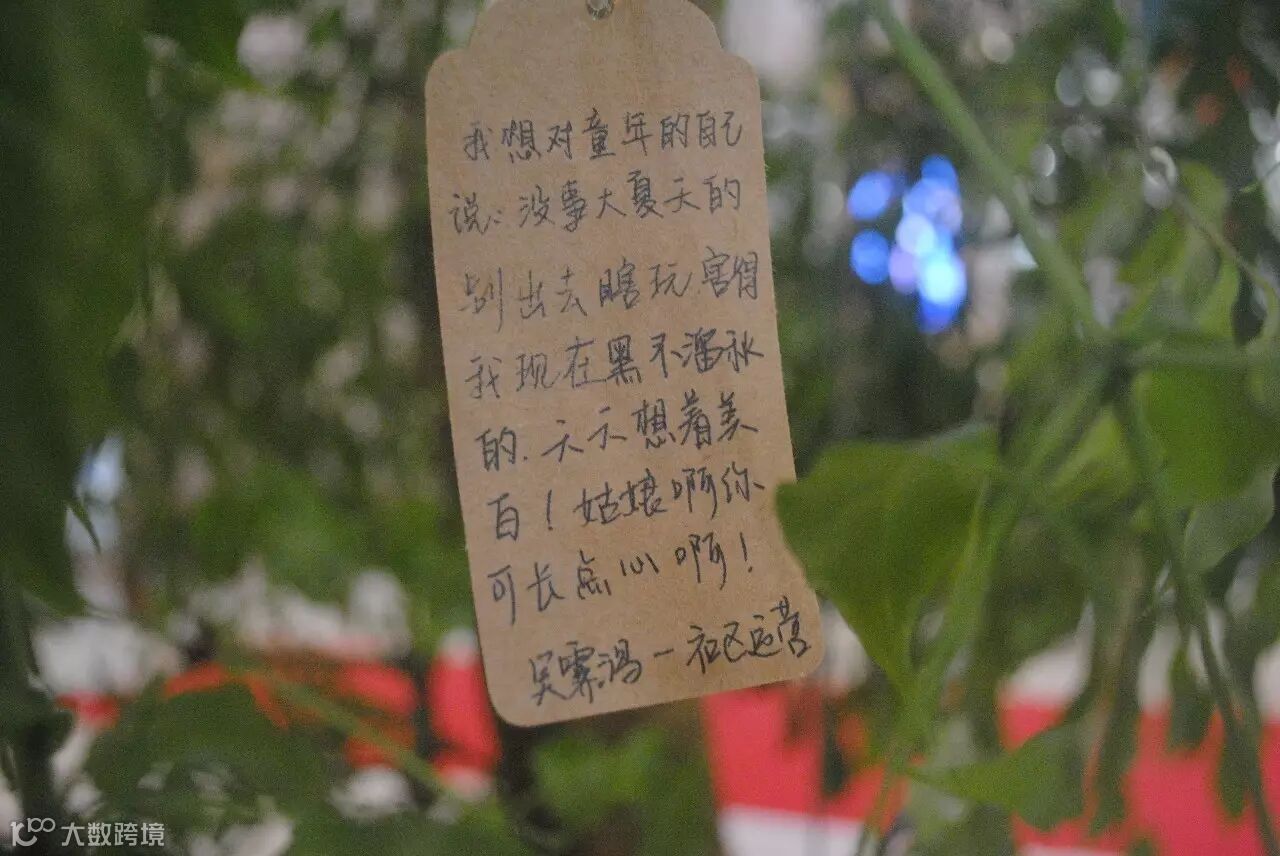 我想对童年的自己
说：没事大夏天的
别出去瞎玩,害得
我现在黑不溜秋
的.天天想着美
白！姑娘啊你
可长点心啊！
吴霁鸿一社区运营
大数跨境